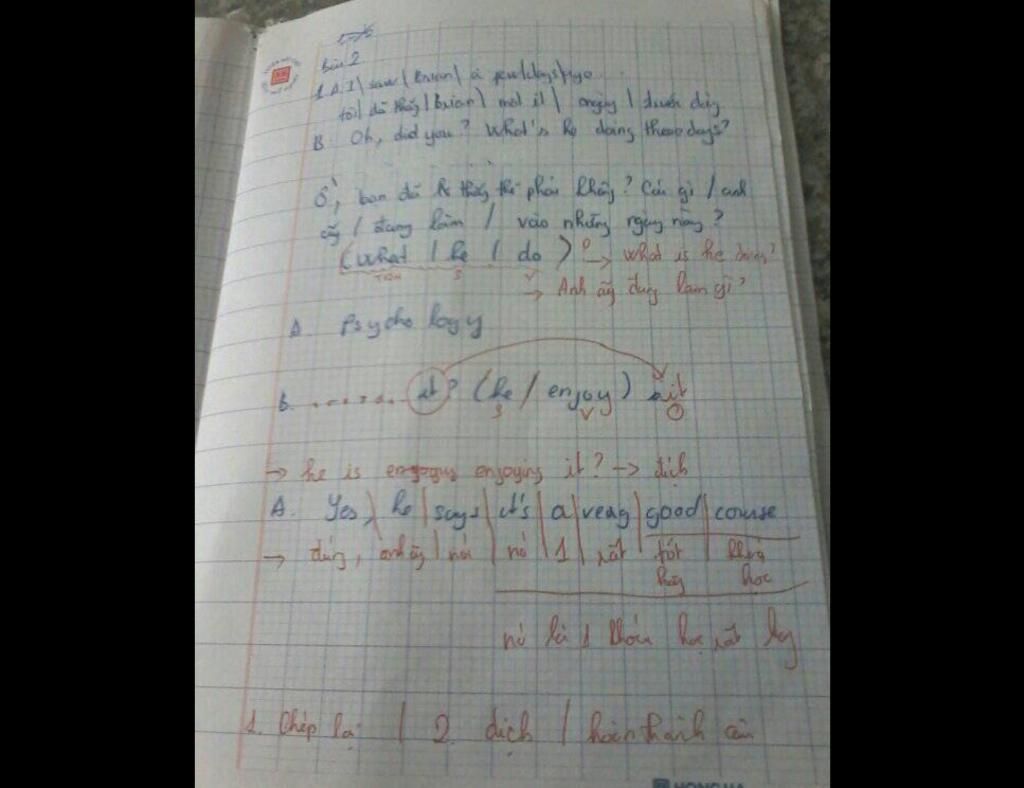 Bài 2
1. A. I | saw | Brian | a few | days | ago
tôi | đã thấy | Brian | một ít | ngày | trước đây
B. Oh, did you? What's he doing these days?
Ồ, bạn đã thấy thế phải không? Cái gì / anh
ấy / đang làm / vào những ngày này?
(What / he / do)? → What is he doing?
S V
→ Anh ấy đang làm gì?
A. Psychology
B. ........ it? (he / enjoy) it
S V O
→ he is enjoying it? → dịch
A. Yes, he | says | it's | a | very | good | course
→ đúng, anh ấy | nói | nó | 1 | rất | tốt | khóa
hay học
nó là 1 khóa học rất hay
1. Chép lại | 2. dịch | hoàn thành câu
HONG HA